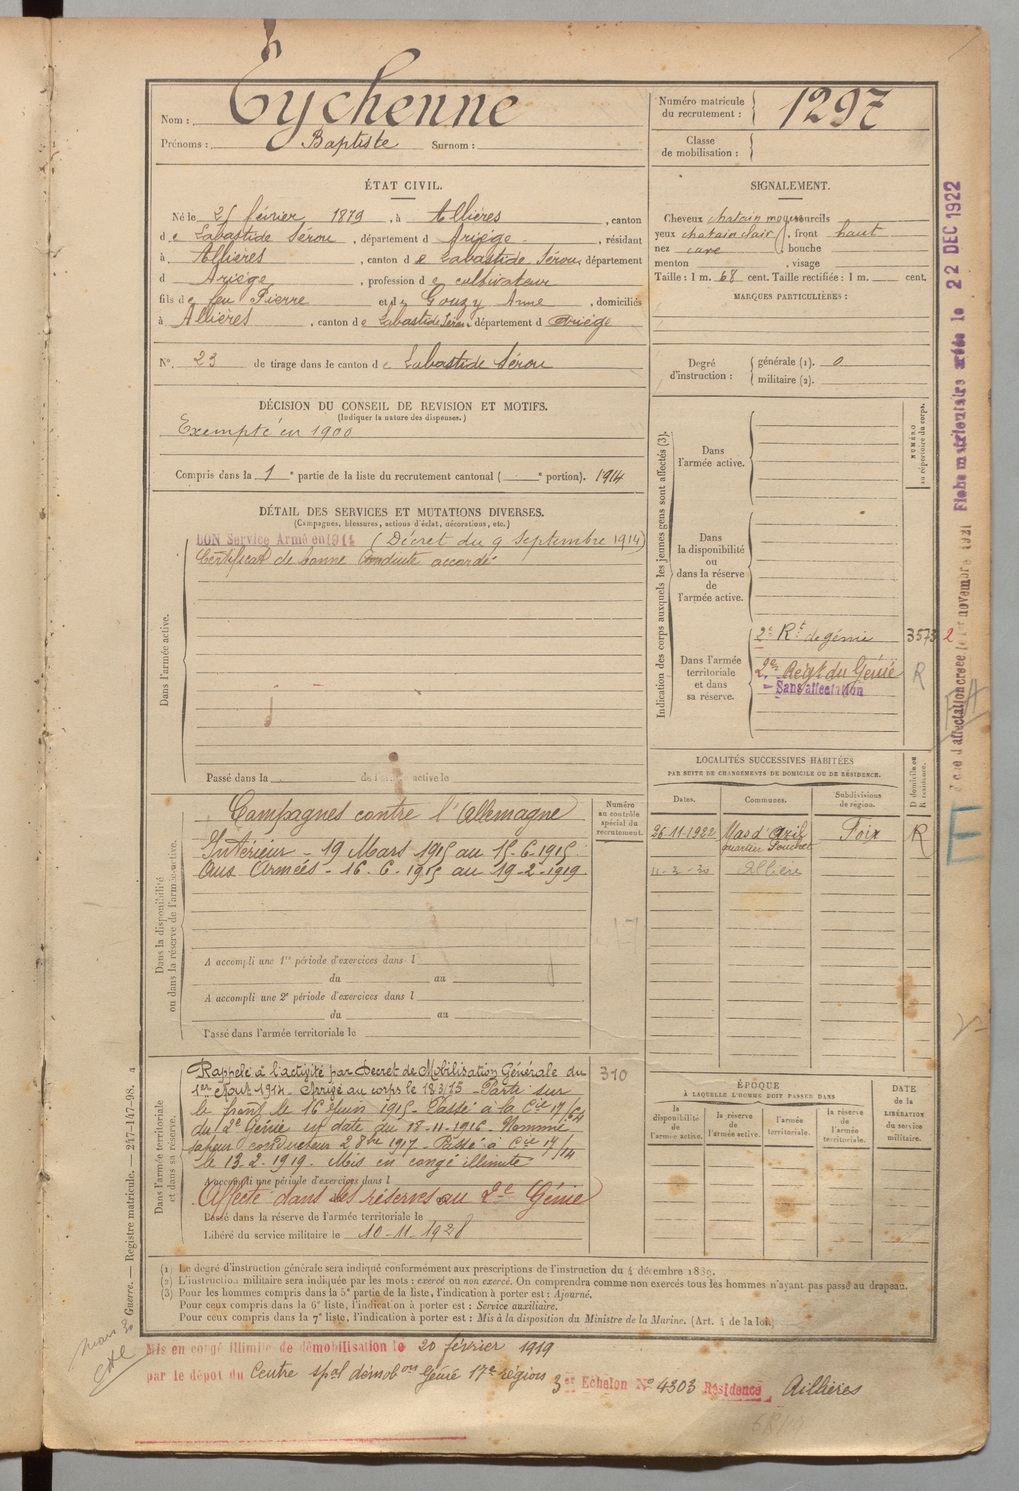 Nom : Eychenne
Prénoms : Baptiste Surnom :
Numéro matricule du recrutement : 1297
Classe de mobilisation :
ÉTAT CIVIL.
Né le 25 février 1879, à Allières, canton
de Labastide Sérou, département d Ariège, résidant
à Allières, canton de Labastide Sérou, département
d Ariège, profession de cultivateur
fils de feu Pierre et de Gouzy Anne, domiciliés
à Allières, canton de Labastide Sérou département d Ariège
N° 23 de tirage dans le canton de Labastide Sérou
SIGNALEMENT.
Cheveux chatain moyen sourcils
yeux chatain clair, front haut
nez cave, bouche
menton, visage
Taille : 1 m. 68 cent. Taille rectifiée : 1 m. cent.
MARQUES PARTICULIÈRES :
Degré d'instruction : générale (1). 0
militaire (2).
DÉCISION DU CONSEIL DE REVISION ET MOTIFS.
(Indiquer la nature des dispenses.)
Exempté en 1900
Compris dans la 1e partie de la liste du recrutement cantonal ( e portion). 1914
DÉTAIL DES SERVICES ET MUTATIONS DIVERSES.
(Campagnes, blessures, actions d'éclat, décorations, etc.)
BON Service Armé en 1914 (Décret du 9 Septembre 1914)
Certificat de bonne Conduite accordé
Dans l'armée active.
Passé dans la de l'armée active le
Indication des corps auxquels les jeunes gens sont affectés (3).
NUMÉRO au répertoire du corps.
Dans l'armée active.
Dans la disponibilité ou dans la réserve de l'armée active.
Dans l'armée territoriale et dans sa réserve.
2e Rt de génie 3573 2
2e Regt du Génie R
Sans affectation
LOCALITÉS SUCCESSIVES HABITÉES
PAR SUITE DE CHANGEMENTS DE DOMICILE OU DE RÉSIDENCE.
D domicile ou R résidence.
Dates. Communes. Subdivisions de région.
26-11-1922 Mas d'Azil Foix R
quartier
11-3-30 Allière
Dans la disponibilité ou dans la réserve de l'armée active.
Numéro au contrôle spécial du recrutement.
Campagnes contre l'Allemagne
Intérieur - 19 Mars 1915 au 15-6-1915
Aux Armées - 16-6-1915 au 19-2-1919
A accompli une 1re période d'exercices dans l
du au
A accompli une 2e période d'exercices dans l
du au
Passé dans l'armée territoriale le
Dans l'armée territoriale et dans sa réserve.
310
Rappelé à l'activité par Décret de Mobilisation Générale du
1er Aout 1914. Arrivé au corps le 18/3/15 - Parti sur
le front le 16 juin 1915 - Passé à la Cie 17/64
du 2e Génie en date du 18-11-1916 - Nommé
sapeur conducteur 2 8bre 1917 - Passé à Cie 17/14
le 13-2-1919. Mis en congé illimité
A accompli une période d'exercices dans l
Affecté dans les réserves au 2e Génie
Passé dans la réserve de l'armée territoriale le
Libéré du service militaire le 10-11-1928
ÉPOQUE
À LAQUELLE L'HOMME DOIT PASSER DANS
la disponibilité de l'armée active.
la réserve de l'armée active.
l'armée territoriale.
la réserve de l'armée territoriale.
DATE de la LIBÉRATION du service militaire.
(1) Le degré d'instruction générale sera indiqué conformément aux prescriptions de l'instruction du 4 décembre 1889.
(2) L'instruction militaire sera indiquée par les mots : exercé ou non exercé. On comprendra comme non exercés tous les hommes n'ayant pas passé au drapeau.
(3) Pour les hommes compris dans la 5e partie de la liste, l'indication à porter est : Ajourné.
Pour ceux compris dans la 6e liste, l'indication à porter est : Service auxiliaire.
Pour ceux compris dans la 7e liste, l'indication à porter est : Mis à la disposition du Ministre de la Marine. (Art. 4 de la loi.)
Guerre. — Registre matricule. — 247-147-98.
Mis en congé illimité de démobilisation le 20 février 1919
par le dépot du Centre spal démobon Génie 17e région 3er Echelon N° 4303 Résidence Aillières
Fiche matriculaire créée le 22 DEC 1922
novembre 1921
E